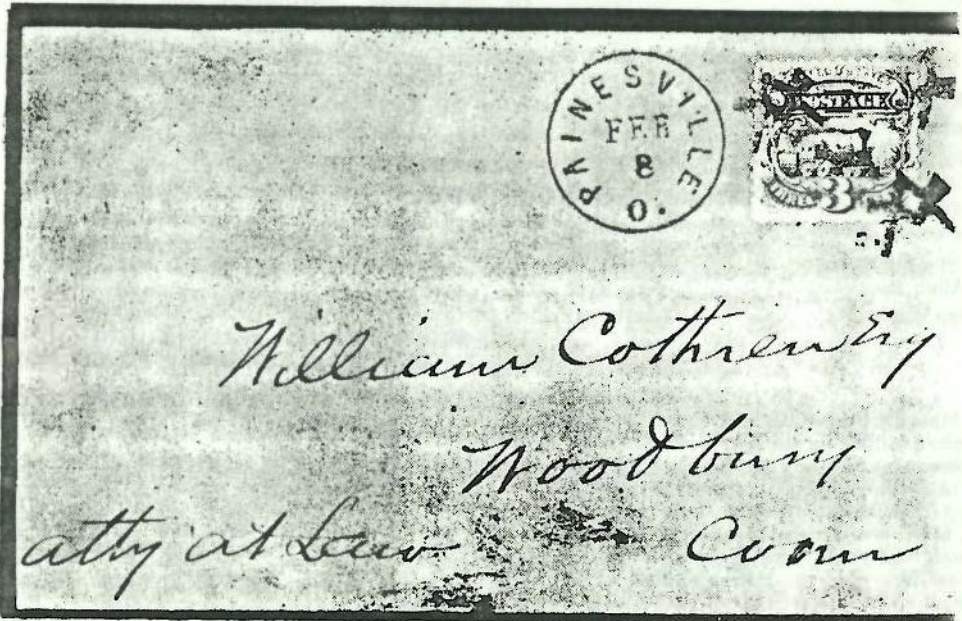 PAINESVILLE O.
FEB
8
POSTAGE
3
William Cothren Esq
Woodbury
atty at Law Conn